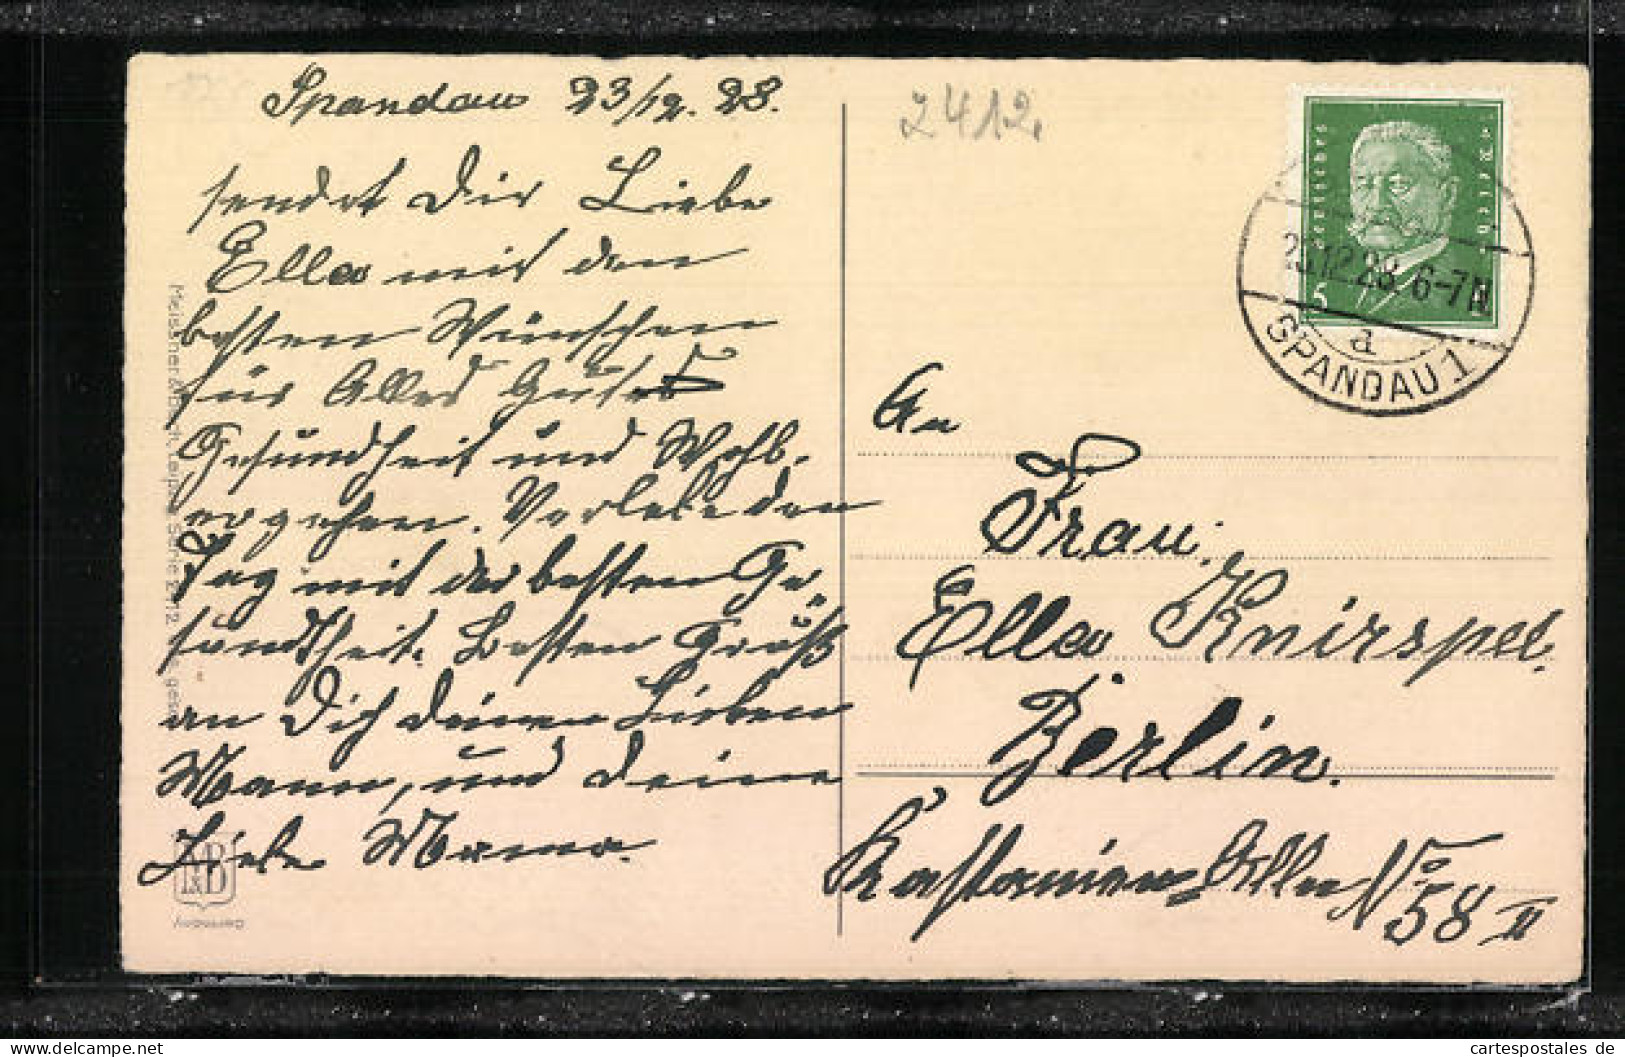 Spandau 23/12. 28.
sendet Dir Liebe
Ella mit den
besten Wünschen
für Alles Gute
Gesundheit und Wohl-
ergehen. Verlebe den
Tag mit der besten Ge-
sundheit. Besten Gruß
an Dich deinen Lieben
Mann, und deine
Liebe Mama.
2412.
Deutsches Reich
5
12.28. 6-7N
a
SPANDAU 1
An
Frau
Ella Knirspel.
Berlin.
Kastanien-Allee No 58 II
Meissner & Buch, Leipzig Serie 2412
M&B
Germany
cartespostales de